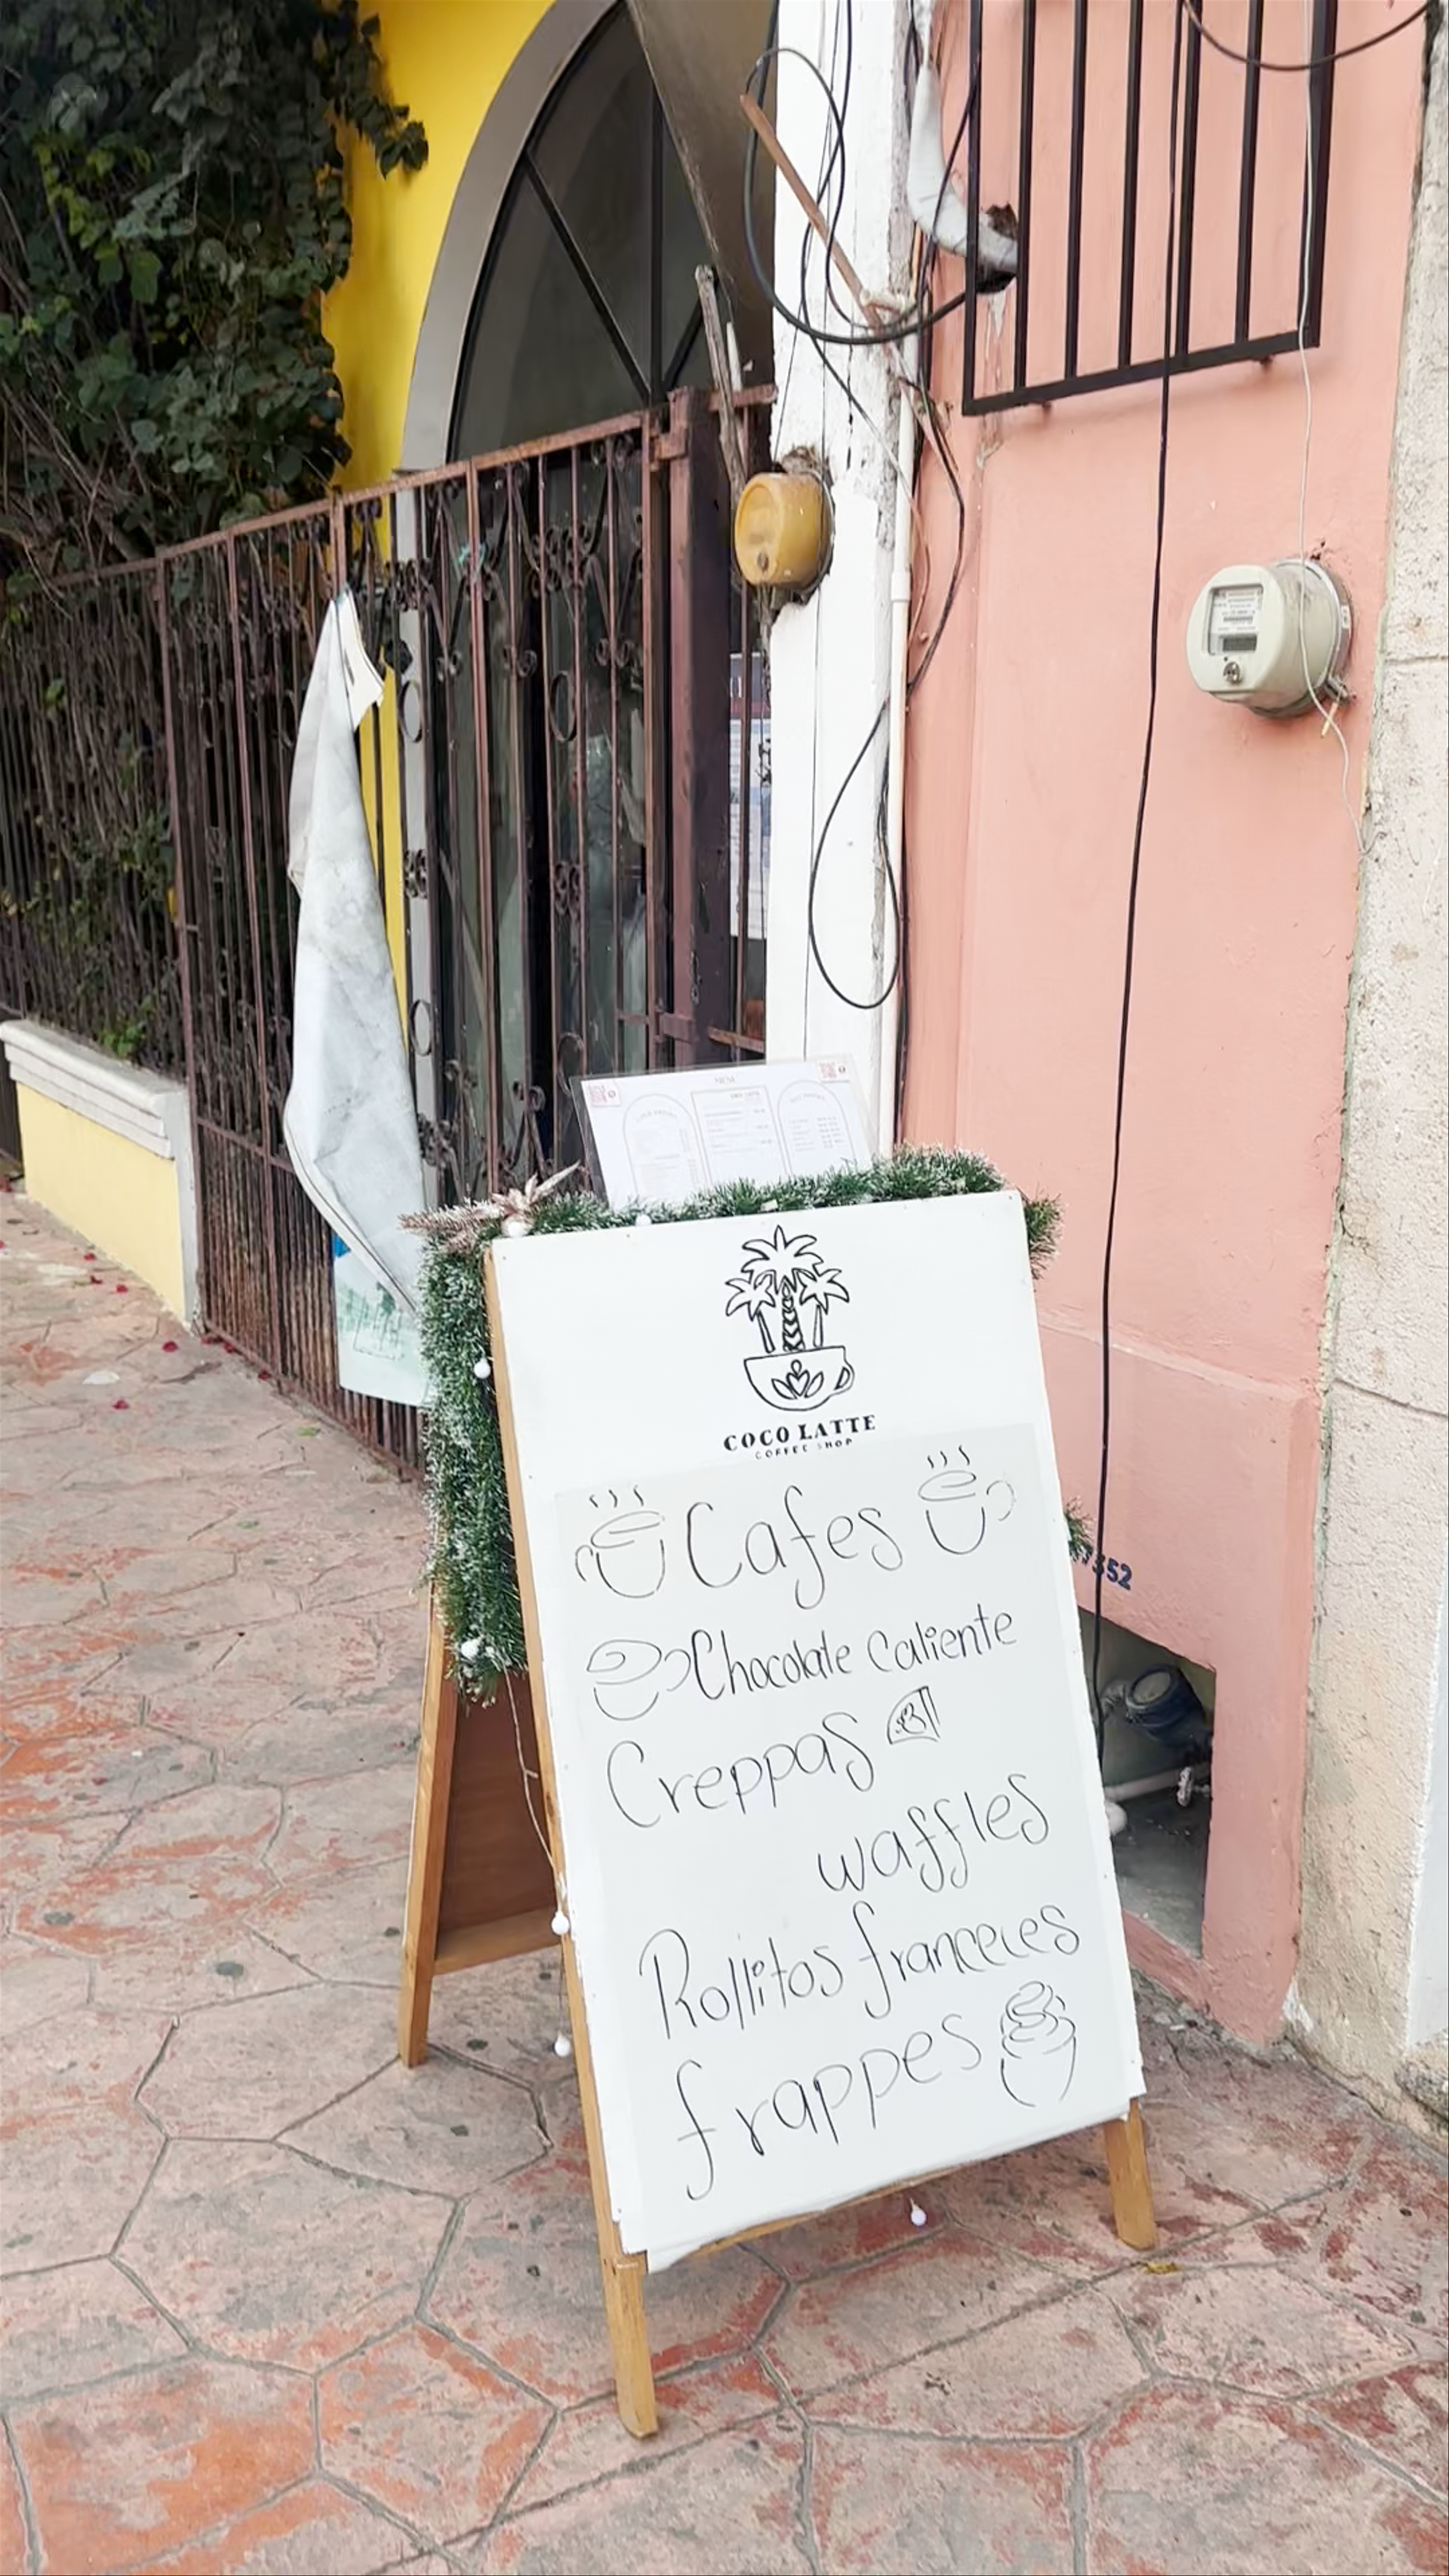 MENU
COCO LATTE
COFFEE SHOP
Cafes
Chocolate Caliente
Creppas
waffles
Rollitos franceces
frappes
7352